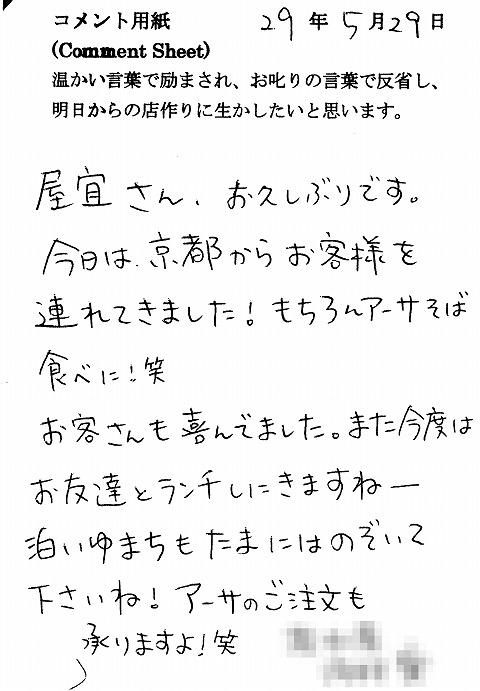 コメント用紙 29年5月29日
(Comment Sheet)
温かい言葉で励まされ、お叱りの言葉で反省し、
明日からの店作りに生かしたいと思います。
屋宜さん、お久しぶりです。
今日は、京都からお客様を
連れてきました!もちろんアーサそば
食べに!笑
お客さんも喜んでました。また今度は
お友達とランチしにきますねー
泊いゆまちもたまにはのぞいて
下さいね!アーサのご注文も
承りますよ!笑